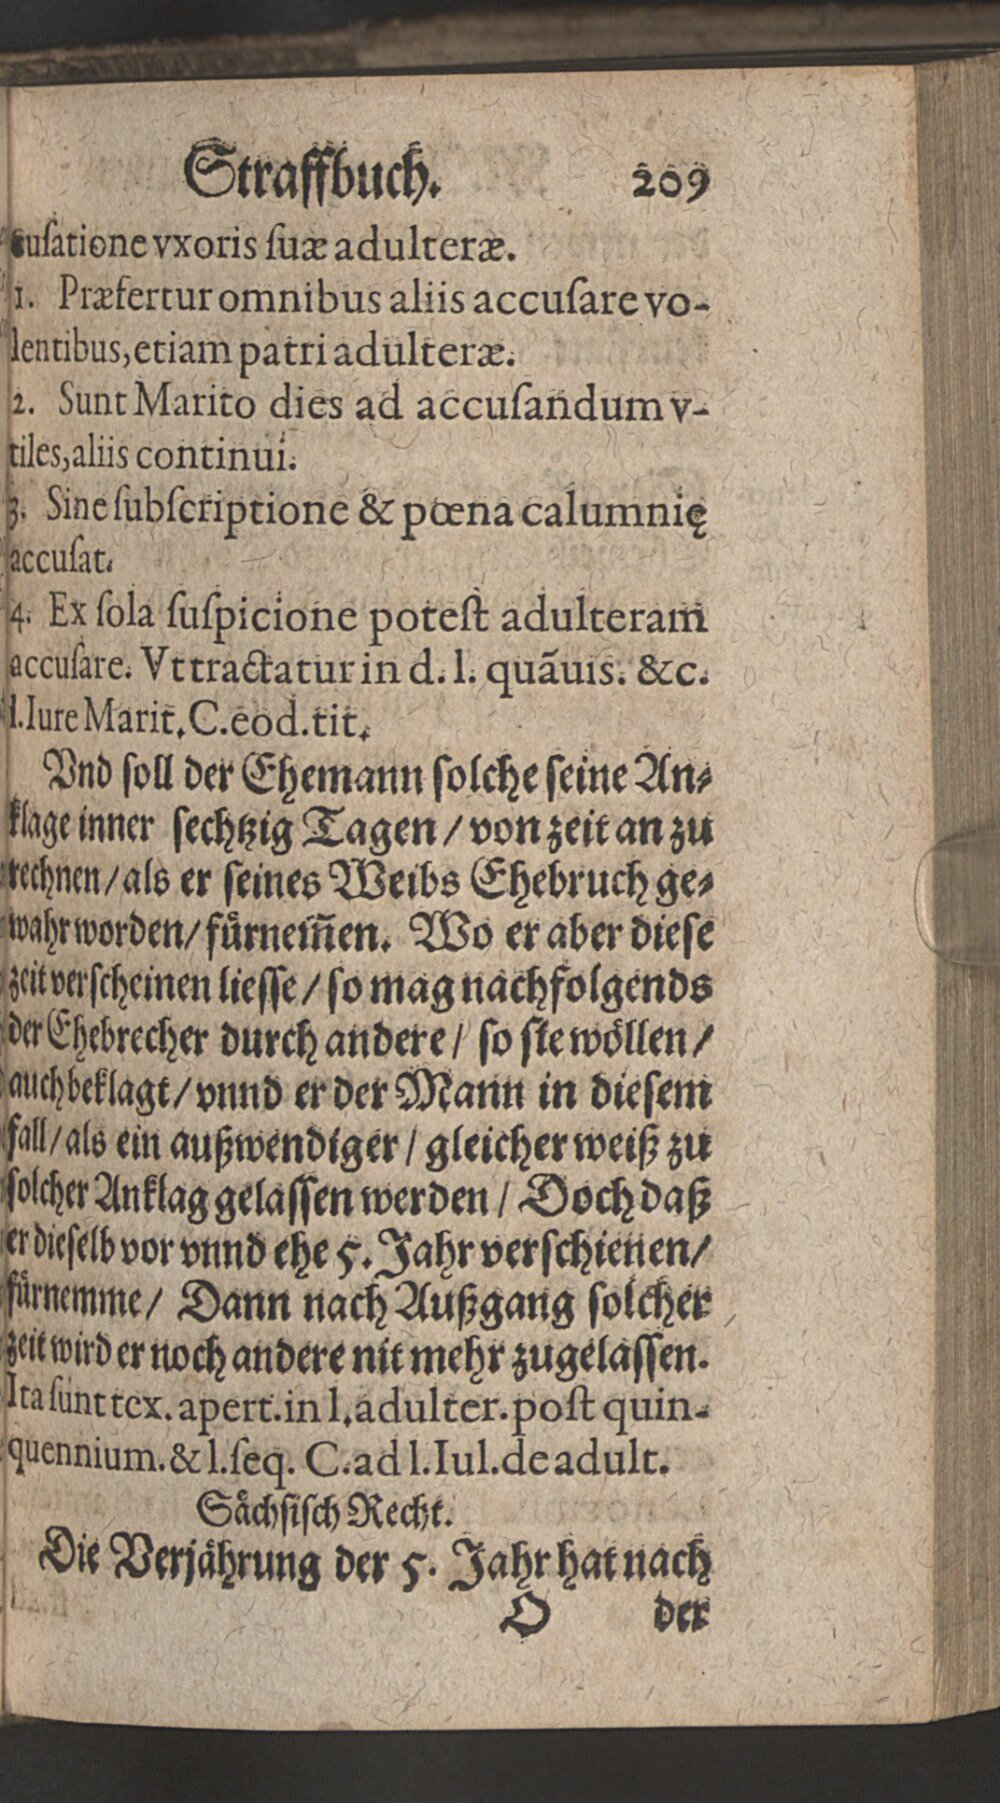 Straffbuch. 209
cuſatione vxoris ſuæ adulteræ.
1. Præfertur omnibus aliis accuſare vo-
lentibus, etiam patri adulteræ.
2. Sunt Marito dies ad accuſandum v-
tiles, aliis continui.
3. Sine ſubſcriptione & pœna calumnię
accuſat.
4. Ex ſola ſuſpicione poteſt adulteram
accuſare. Vt tractatur in d. l. quãuis. &c.
l. Iure Marit. C. eod. tit.
Vnd ſoll der Ehemann ſolche ſeine An⸗
klage inner ſechtzig Tagen / von zeit an zu
rechnen / als er ſeines Weibs Ehebruch ge⸗
wahr worden / fuͤrnem̃en. Wo er aber dieſe
zeit verſcheinen lieſſe / ſo mag nachfolgends
der Ehebrecher durch andere / ſo ſie woͤllen /
auch beklagt / vnnd er der Mann in dieſem
fall / als ein außwendiger / gleicher weiß zu
ſolcher Anklag gelaſſen werden / Doch daß
er dieſelb vor vnnd ehe 5. Jahr verſchienen /
fuͤrnemme / Dann nach Außgang ſolcher
zeit wird er noch andere nit mehr zugelaſſen.
Ita ſunt tex. apert. in l. adulter. poſt quin-
quennium. & l. ſeq. C. ad l. Iul. de adult.
Saͤchſiſch Recht.
Die Verjaͤhrung der 5. Jahr hat nach
O der